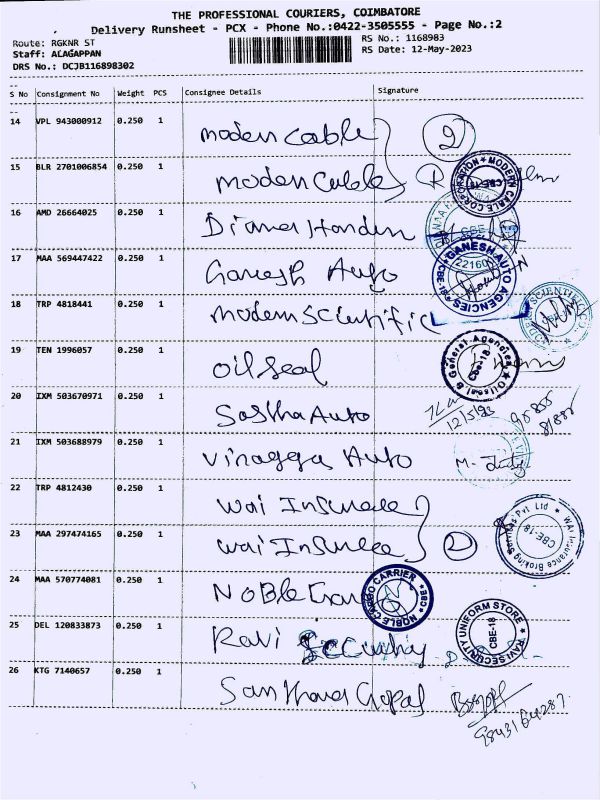 THE PROFESSIONAL COURIERS, COIMBATORE
Delivery Runsheet - PCX - Phone No.:0422-3505555 - Page No.:2
Route: RGKNR ST
Staff: ALAGAPPAN
DRS No.: DCJB116898302
RS No.: 1168983
RS Date: 12-May-2023
S No Consignment No Weight PCS Consignee Details Signature
14 VPL 943000912 0.250 1 moden cable 2
15 BLR 2701006854 0.250 1 moden cable
MODERN CABLE CORPORATION CBE-18
16 AMD 26664025 0.250 1
CBE
17 MAA 569447422 0.250 1 Ganesh Auto
GANESH AUTO AGENCIES CBE-18
18 TRP 4818441 0.250 1 modern scientific
19 TEN 1996057 0.250 1 oil seal
Oilseal & General Agencies CBE-18
20 IXM 503670971 0.250 1 Sastha Auto
12/5/23
21 IXM 503688979 0.250 1 Vinagga Auto
22 TRP 4812430 0.250 1 wai Insurace
23 MAA 297474165 0.250 1 wai Insurce 2
WAI Insurance Broking Services Pvt Ltd CBE-18
24 MAA 570774081 0.250 1 Noble
NOBLE CARGO CARRIER CBE
25 DEL 120833873 0.250 1 Ravi Security
RAVI SECURITY UNIFORM STORE CBE-18
26 KTG 7140657 0.250 1 Santhana Gopal
9843164287